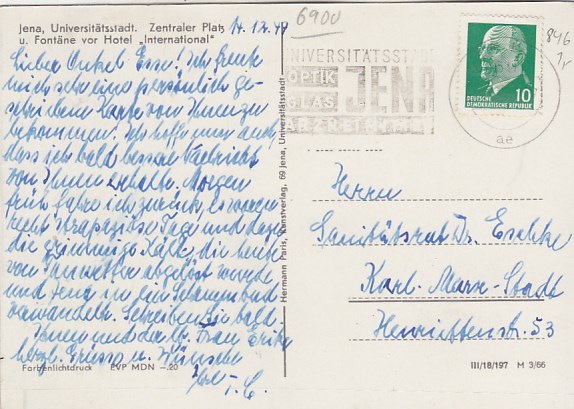 Jena, Universitätsstadt. Zentraler Platz
u. Fontäne vor Hotel „International"
14.12.
6900
846
Lieber Onkel Esse! Ich freute
mich sehr eine persönlich ge-
schriebene Karte von Ihnen zu
bekommen. Ich hoffe nun auch,
dass ich bald bessere Nachricht
von Ihnen erhalte. Morgen
früh fahre ich zurück, es waren
recht strapaziöse Tage und dazu
die grimmige Kälte, die heute
von Tauwetter abgelöst wurde
und Jena in ein Schlammbad
verwandelte. Schreiben Sie bald.
Ihnen und der lb. Frau
herzl. Grüsse u. Wünsche
UNIVERSITÄTSSTADT
OPTIK
GLAS
JENA
DEUTSCHE
DEMOKRATISCHE REPUBLIK
10
ae
Hermann Paris, Kunstverlag, 69 Jena, Universitätsstadt
Herrn
Sanitätsrat Dr. Eschke
Karl-Marx-Stadt
Henriettenstr. 53
Farbenlichtdruck EVP MDN —.20
III/18/197 M 3/66